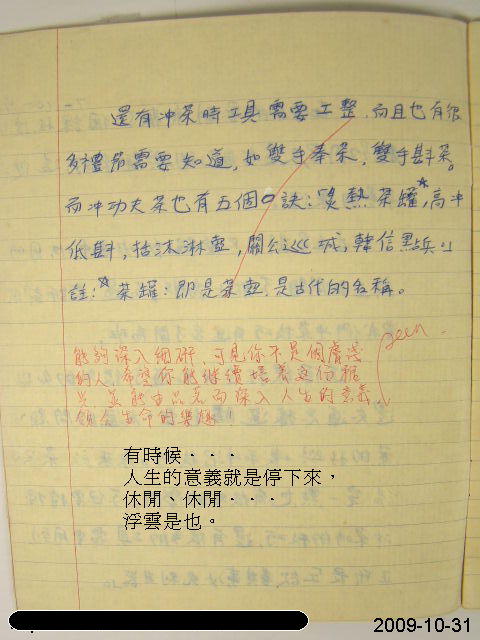 還有沖茶時工具需要工整,而且也有很
多禮節需要知道,如雙手奉茶,雙手斟茶。
而沖功夫茶也有五個口訣:「炙熱茶罐*,高沖
低斟,括沫淋壺,關公巡城,韓信點兵。」
註:*茶罐:即是茶壺,是古代的名稱。
seen
能夠深入細研,可見你不是個膚淺
的人,希望你能繼續培養這份
是 並能由品茗而深入人生的意義,
領会生命的樂趣!
有時候‧‧‧
人生的意義就是停下來,
休閒、休閒‧‧‧
浮雲是也。
2009-10-31